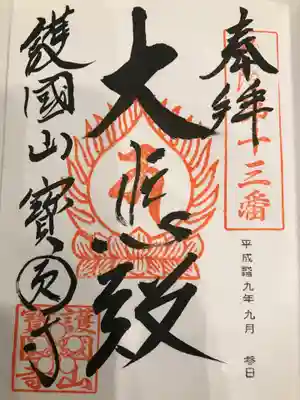 奉拝
十三番
平成 九年 九月 日
大悲殿
護國山 寶 寺
護國山
寶 寺